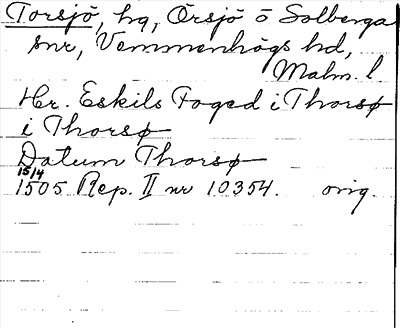 Torsjö, hg, Örsjö o Solberga
snr, Vemmenhögs hd,
Malm. l
Hr. Eskils Foged i Thorsø
i Thorsø
Datum Thorsø
15/4
1505 Rep. II nr 10354. orig.